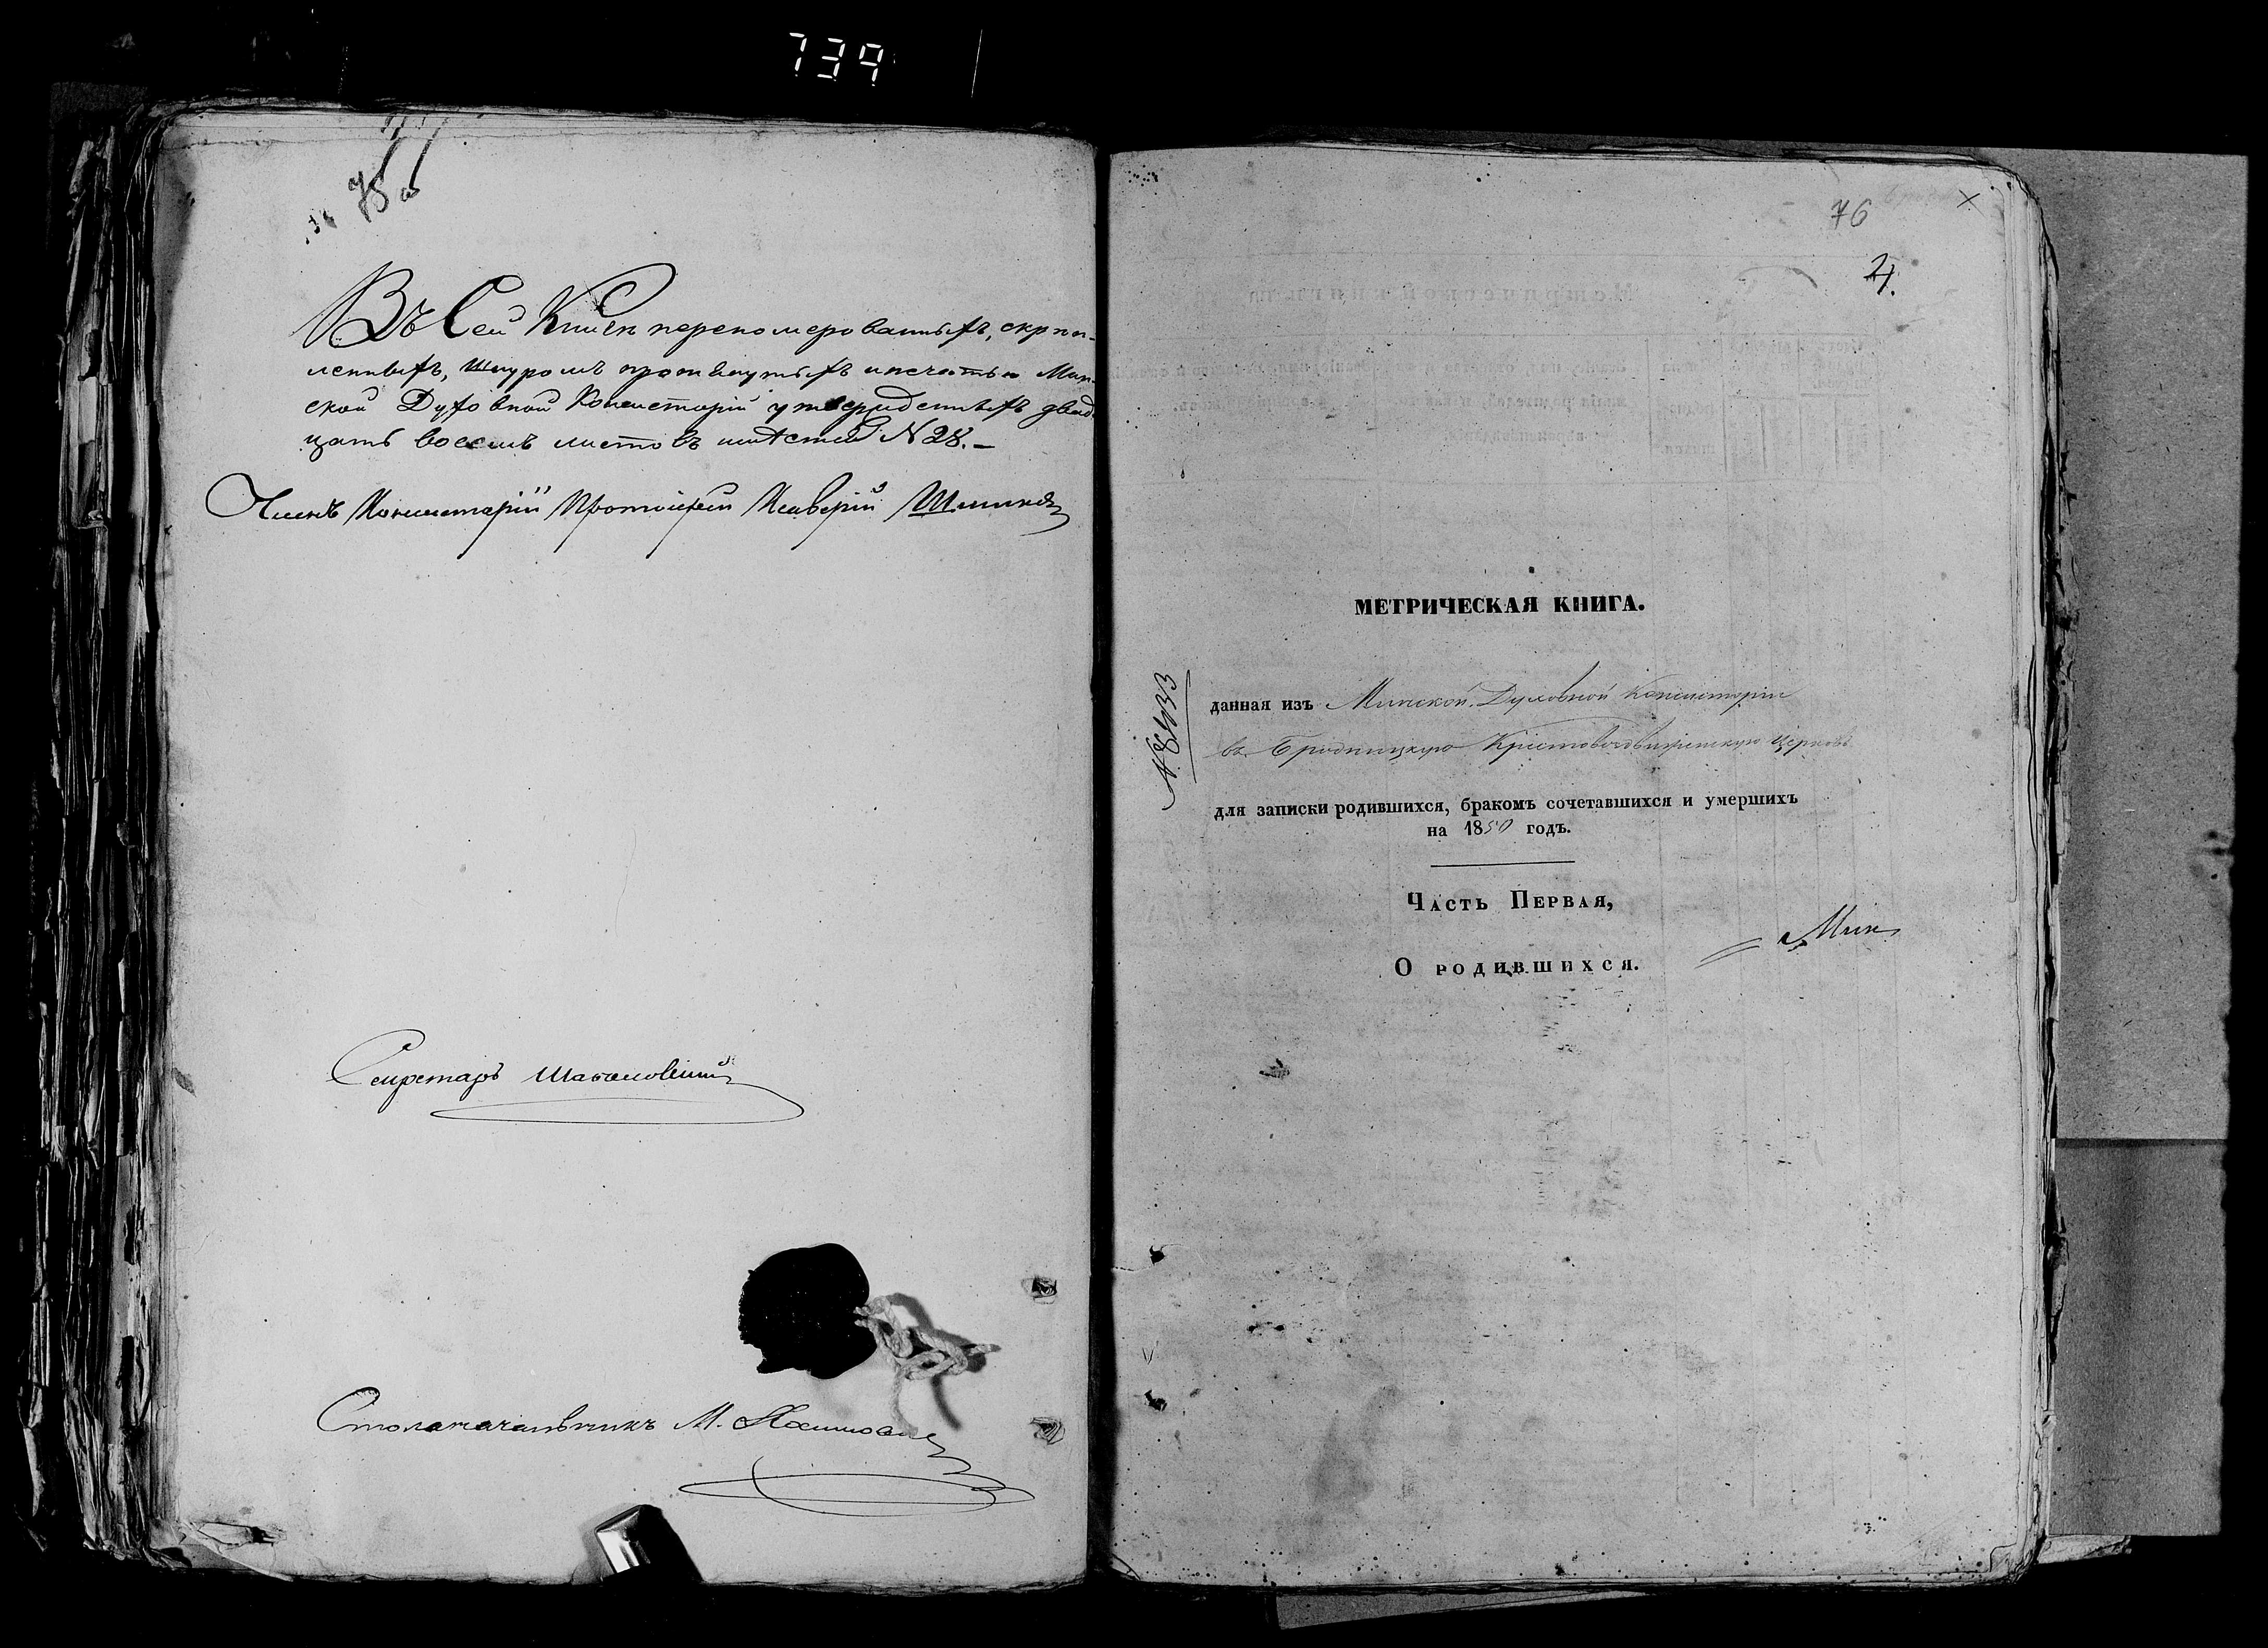 739
75 об
Въ Сей Книгѣ переномерованныхъ, скрѣп-
ленныхъ, шнуромъ протянутыхъ и печатью Мин-
ской Духовной Консисторіи утвержденныхъ двад-
цать восемь листовъ N 28.–
Членъ Консисторіи Протоіерей
Секретарь
Столоначальникъ М.
76
МЕТРИЧЕСКАЯ КНИГА.
данная изъ Минской Духовной Консисторіи
въ Бродницкую Крестовоздвиженскую Церковь
для записки родившихся, бракомъ сочетавшихся и умершихъ
на 1850 годъ.
Часть Первая,
Мин
О родившихся.